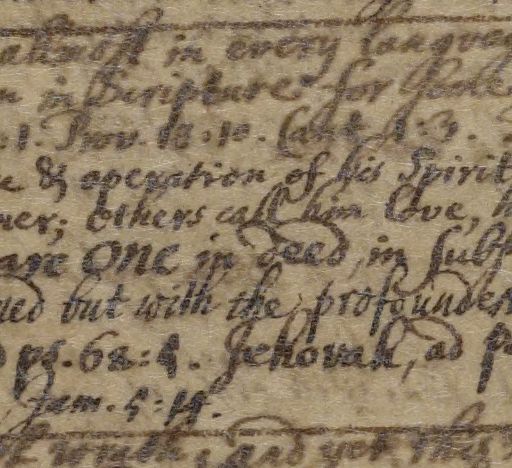 almost in every langue
n in Scripture for
1. Prov. 18:10. Cant. 1:3.
e & operation of his Spirit
ner; others call him love, h
are ONE in deed, in Subs
ued but with the profounde
ps. 68:4. Jehovah, ad p
Jam. 5:14.
and yet this